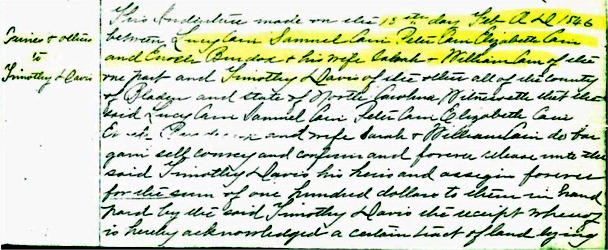 Cairnes & others
to
Timothy & Davis
This Indenture made on the 15th day Feb A.D. 1846
between Lucy Cain Samuel Cain Peter Cain Elizabeth Cain
and Enoch & his wife Sarah & William Cain of the
one part and Timothy & Davis of the other all of the county
of Bladen and state of North Carolina Witnesseth that the
said Lucy Cain Samuel Cain Peter Cain Elizabeth Cain
and wife Sarah & William Cain do bar
gain sell convey and confirm and forever release unto the
said Timothy & Davis his heirs and assigns forever
for the sum of one hundred dollars to them in hand
paid by the said Timothy & Davis the receipt whereof
is hereby acknowledged a certain tract of land lying